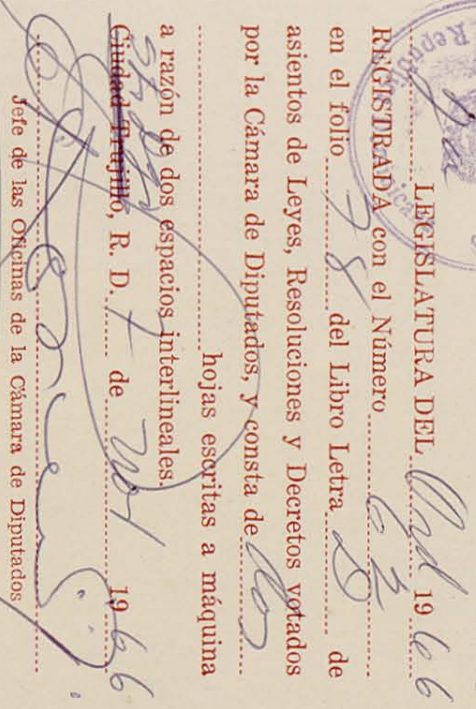 2a LEGISLATURA DEL Ord 1966
REGISTRADA con el Número 62
en el folio 78 del Libro Letra D de
asientos de Leyes, Resoluciones y Decretos votados
por la Cámara de Diputados, y consta de dos
hojas escritas a máquina
a razón de dos espacios interlineales.
Sto Dgo
Ciudad Trujillo, R. D. 7 de Nov 1966
Jefe de las Oficinas de la Cámara de Diputados